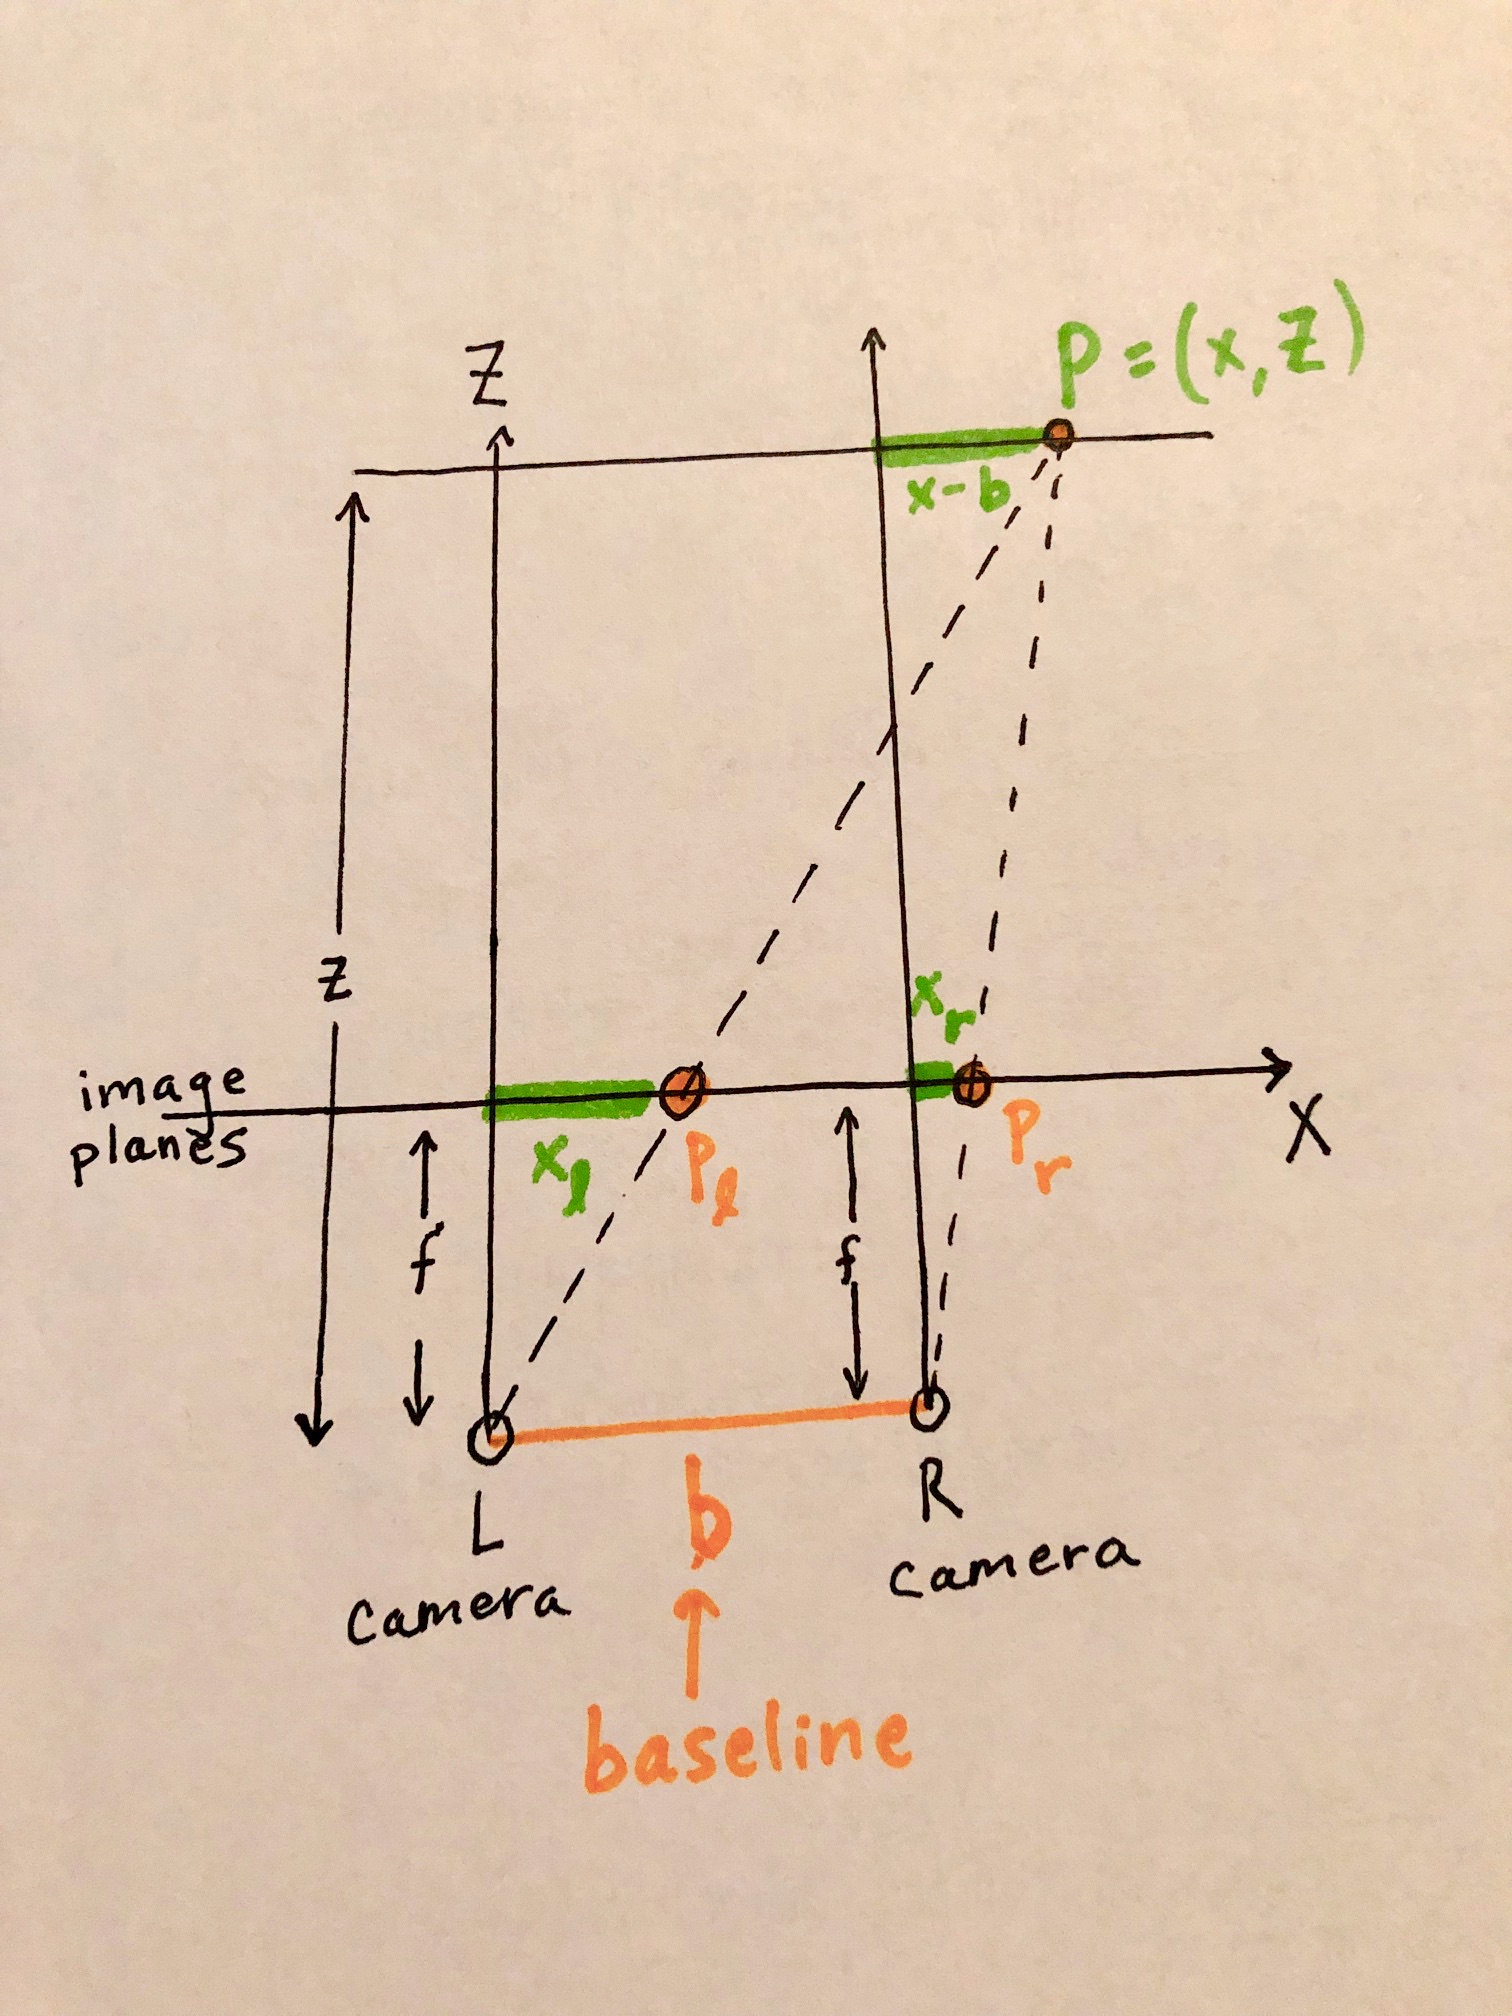 Z
P = (x, z)
x-b
z
xr
image
planes
X
xl
Pl
Pr
f
f
L
camera
b
R
camera
baseline